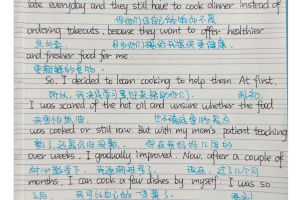 late everyday and they still have to cook dinner instead of
但他们还自己做饭而不是
ordering takeouts, because they want to offer healthier
点外卖，因为他们想给我提供更健康
and fresher food for me.
更新鲜的食物。
So, I decided to learn cooking to help them. At first,
所以，我决定学习烹饪来帮助他们。
I was scared of the hot oil and unsure whether the food
我害怕热油，也不确定食物是否
was cooked or still raw. But with my mom's patient teaching
熟了，还是仍旧
over weeks, I gradually improved. Now, after a couple of
现在，过了几个月
months, I can cook a few dishes by myself. I was so
我可以自己做一些菜了。